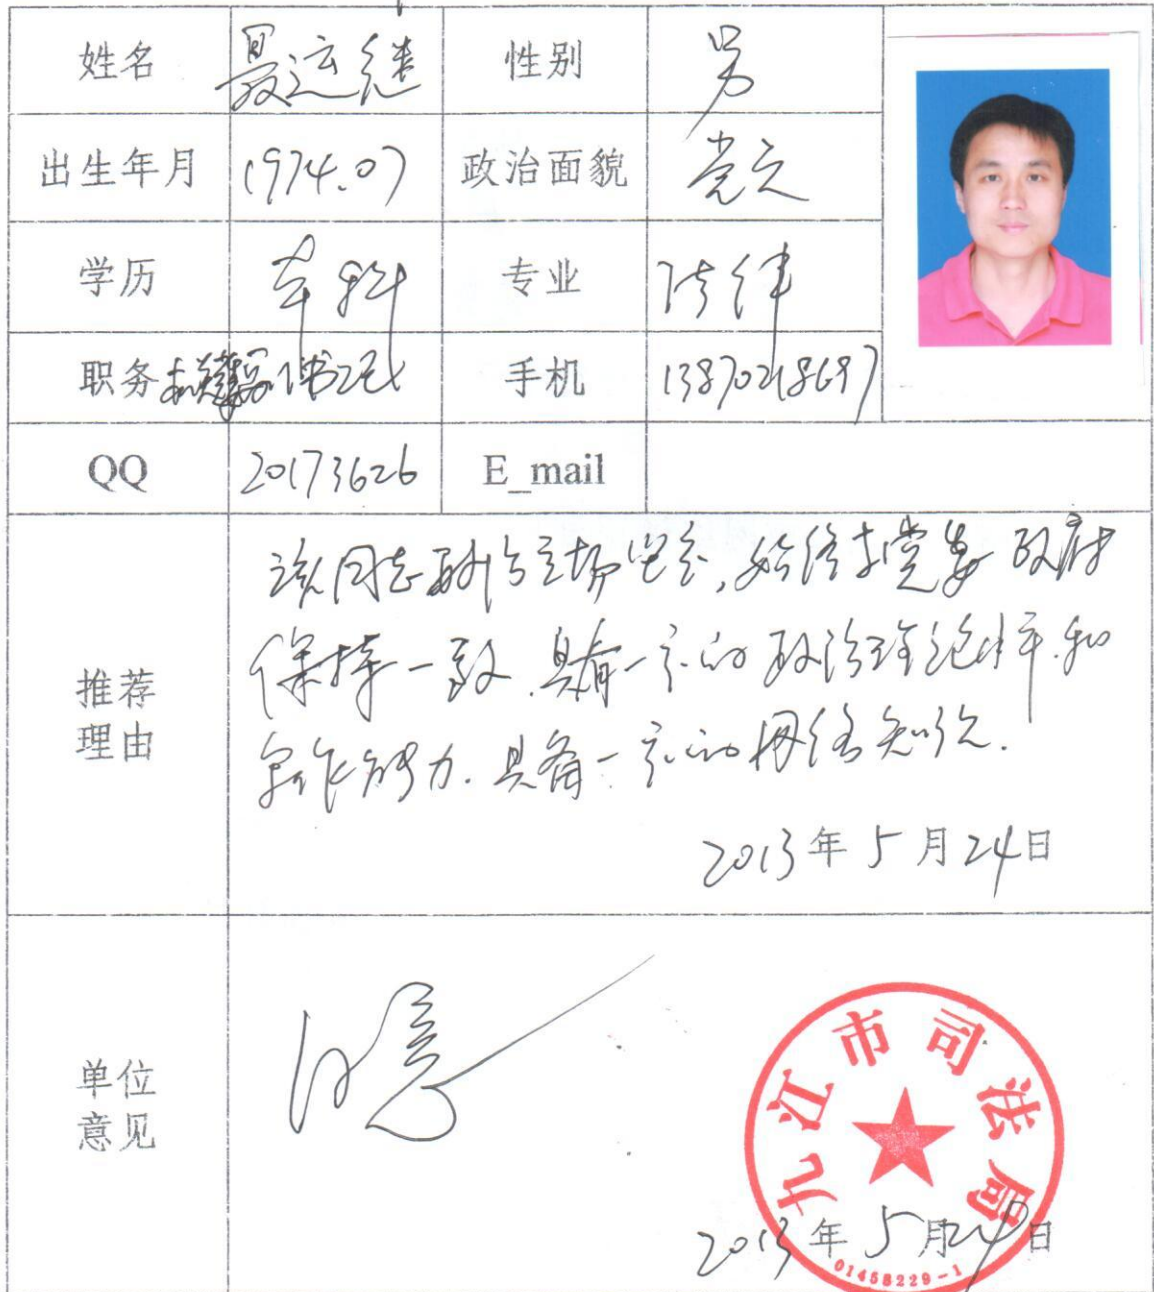 姓名 聂运继 性别 男
出生年月 1974.07 政治面貌 党员
学历 本科 专业 法律
职务 书记 手机 13870218697
QQ 20173626 E_mail
推荐
理由
该同志政治立场坚定,始终与党委政府
保持一致.具有一定的政治理论水平.和
写作能力.具备一定的网络知识.
2013年5月24日
单位
意见
九江市司法局
2013年5月24日
01458229-1